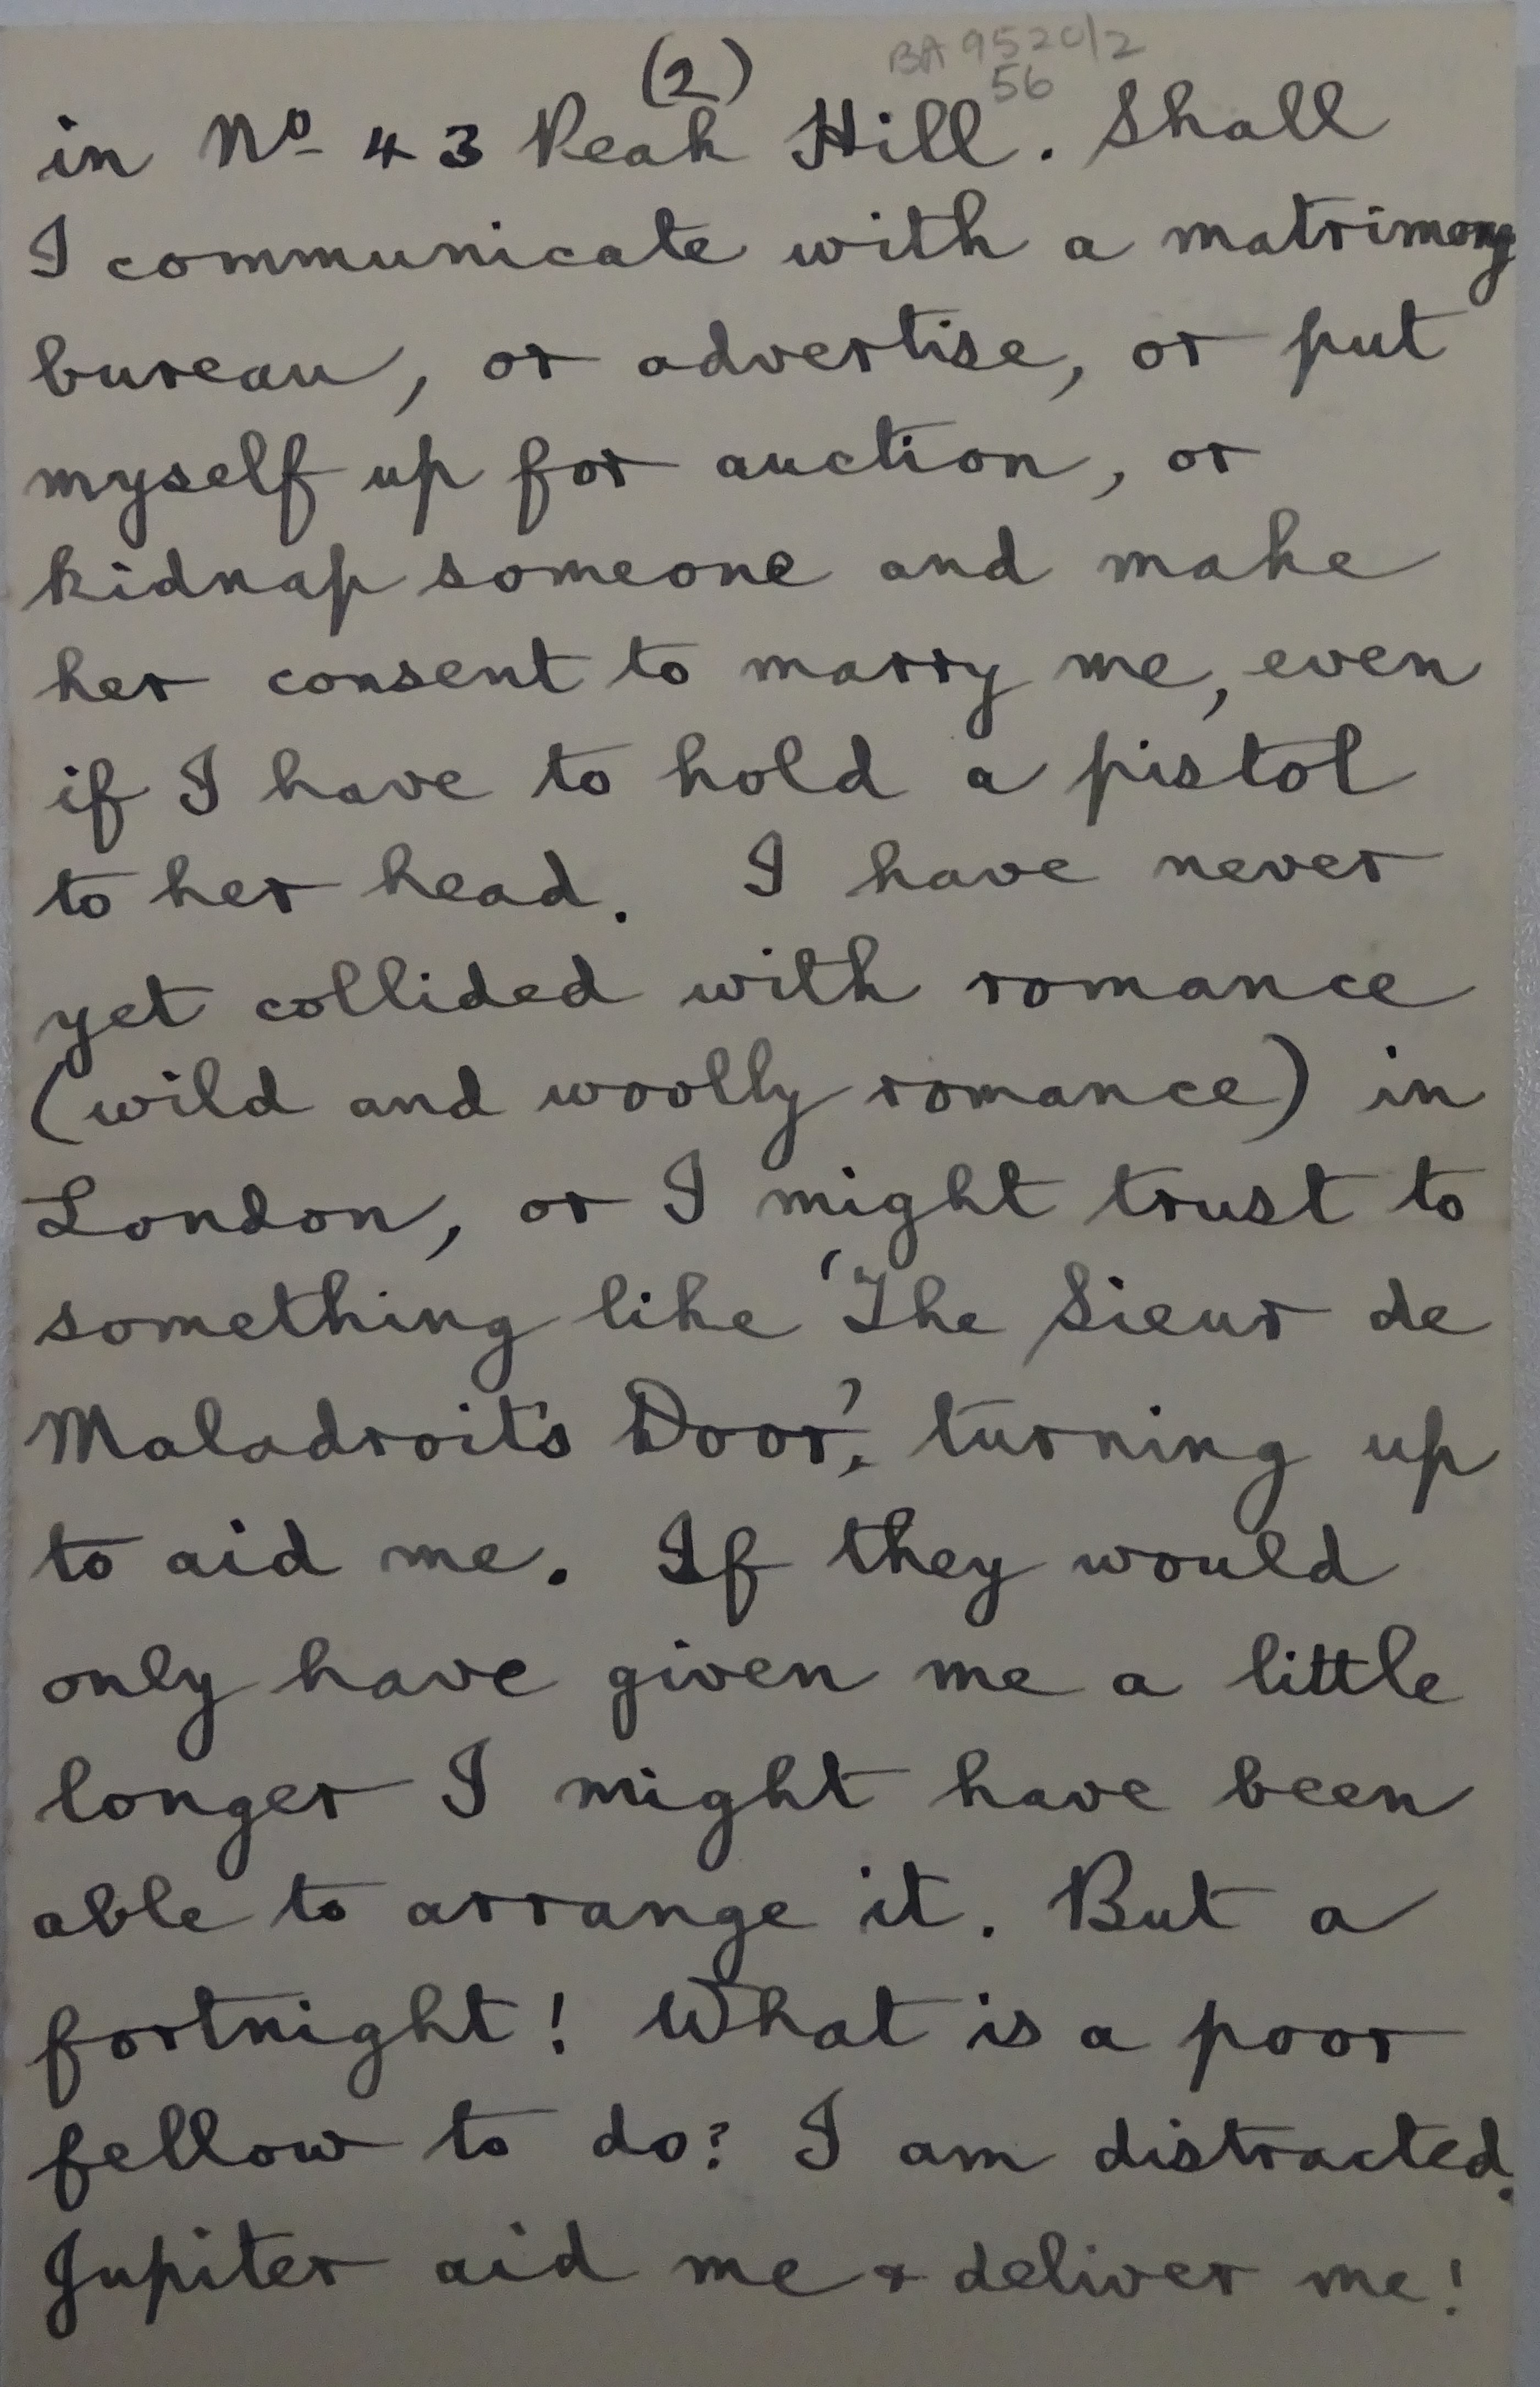 (2)
BA 9520/2
56
in Nº 43 Peak Hill. Shall
I communicate with a matrimony
bureau, or advertise, or put
myself up for auction, or
kidnap someone and make
her consent to marry me, even
if I have to hold a pistol
to her head. I have never
yet collided with romance
(wild and woolly romance) in
London, or I might trust to
something like 'The Sieur de
Maladroit's Door', turning up
to aid me. If they would
only have given me a little
longer I might have been
able to arrange it. But a
fortnight! What is a poor
fellow to do? I am distracted.
Jupiter aid me & deliver me!